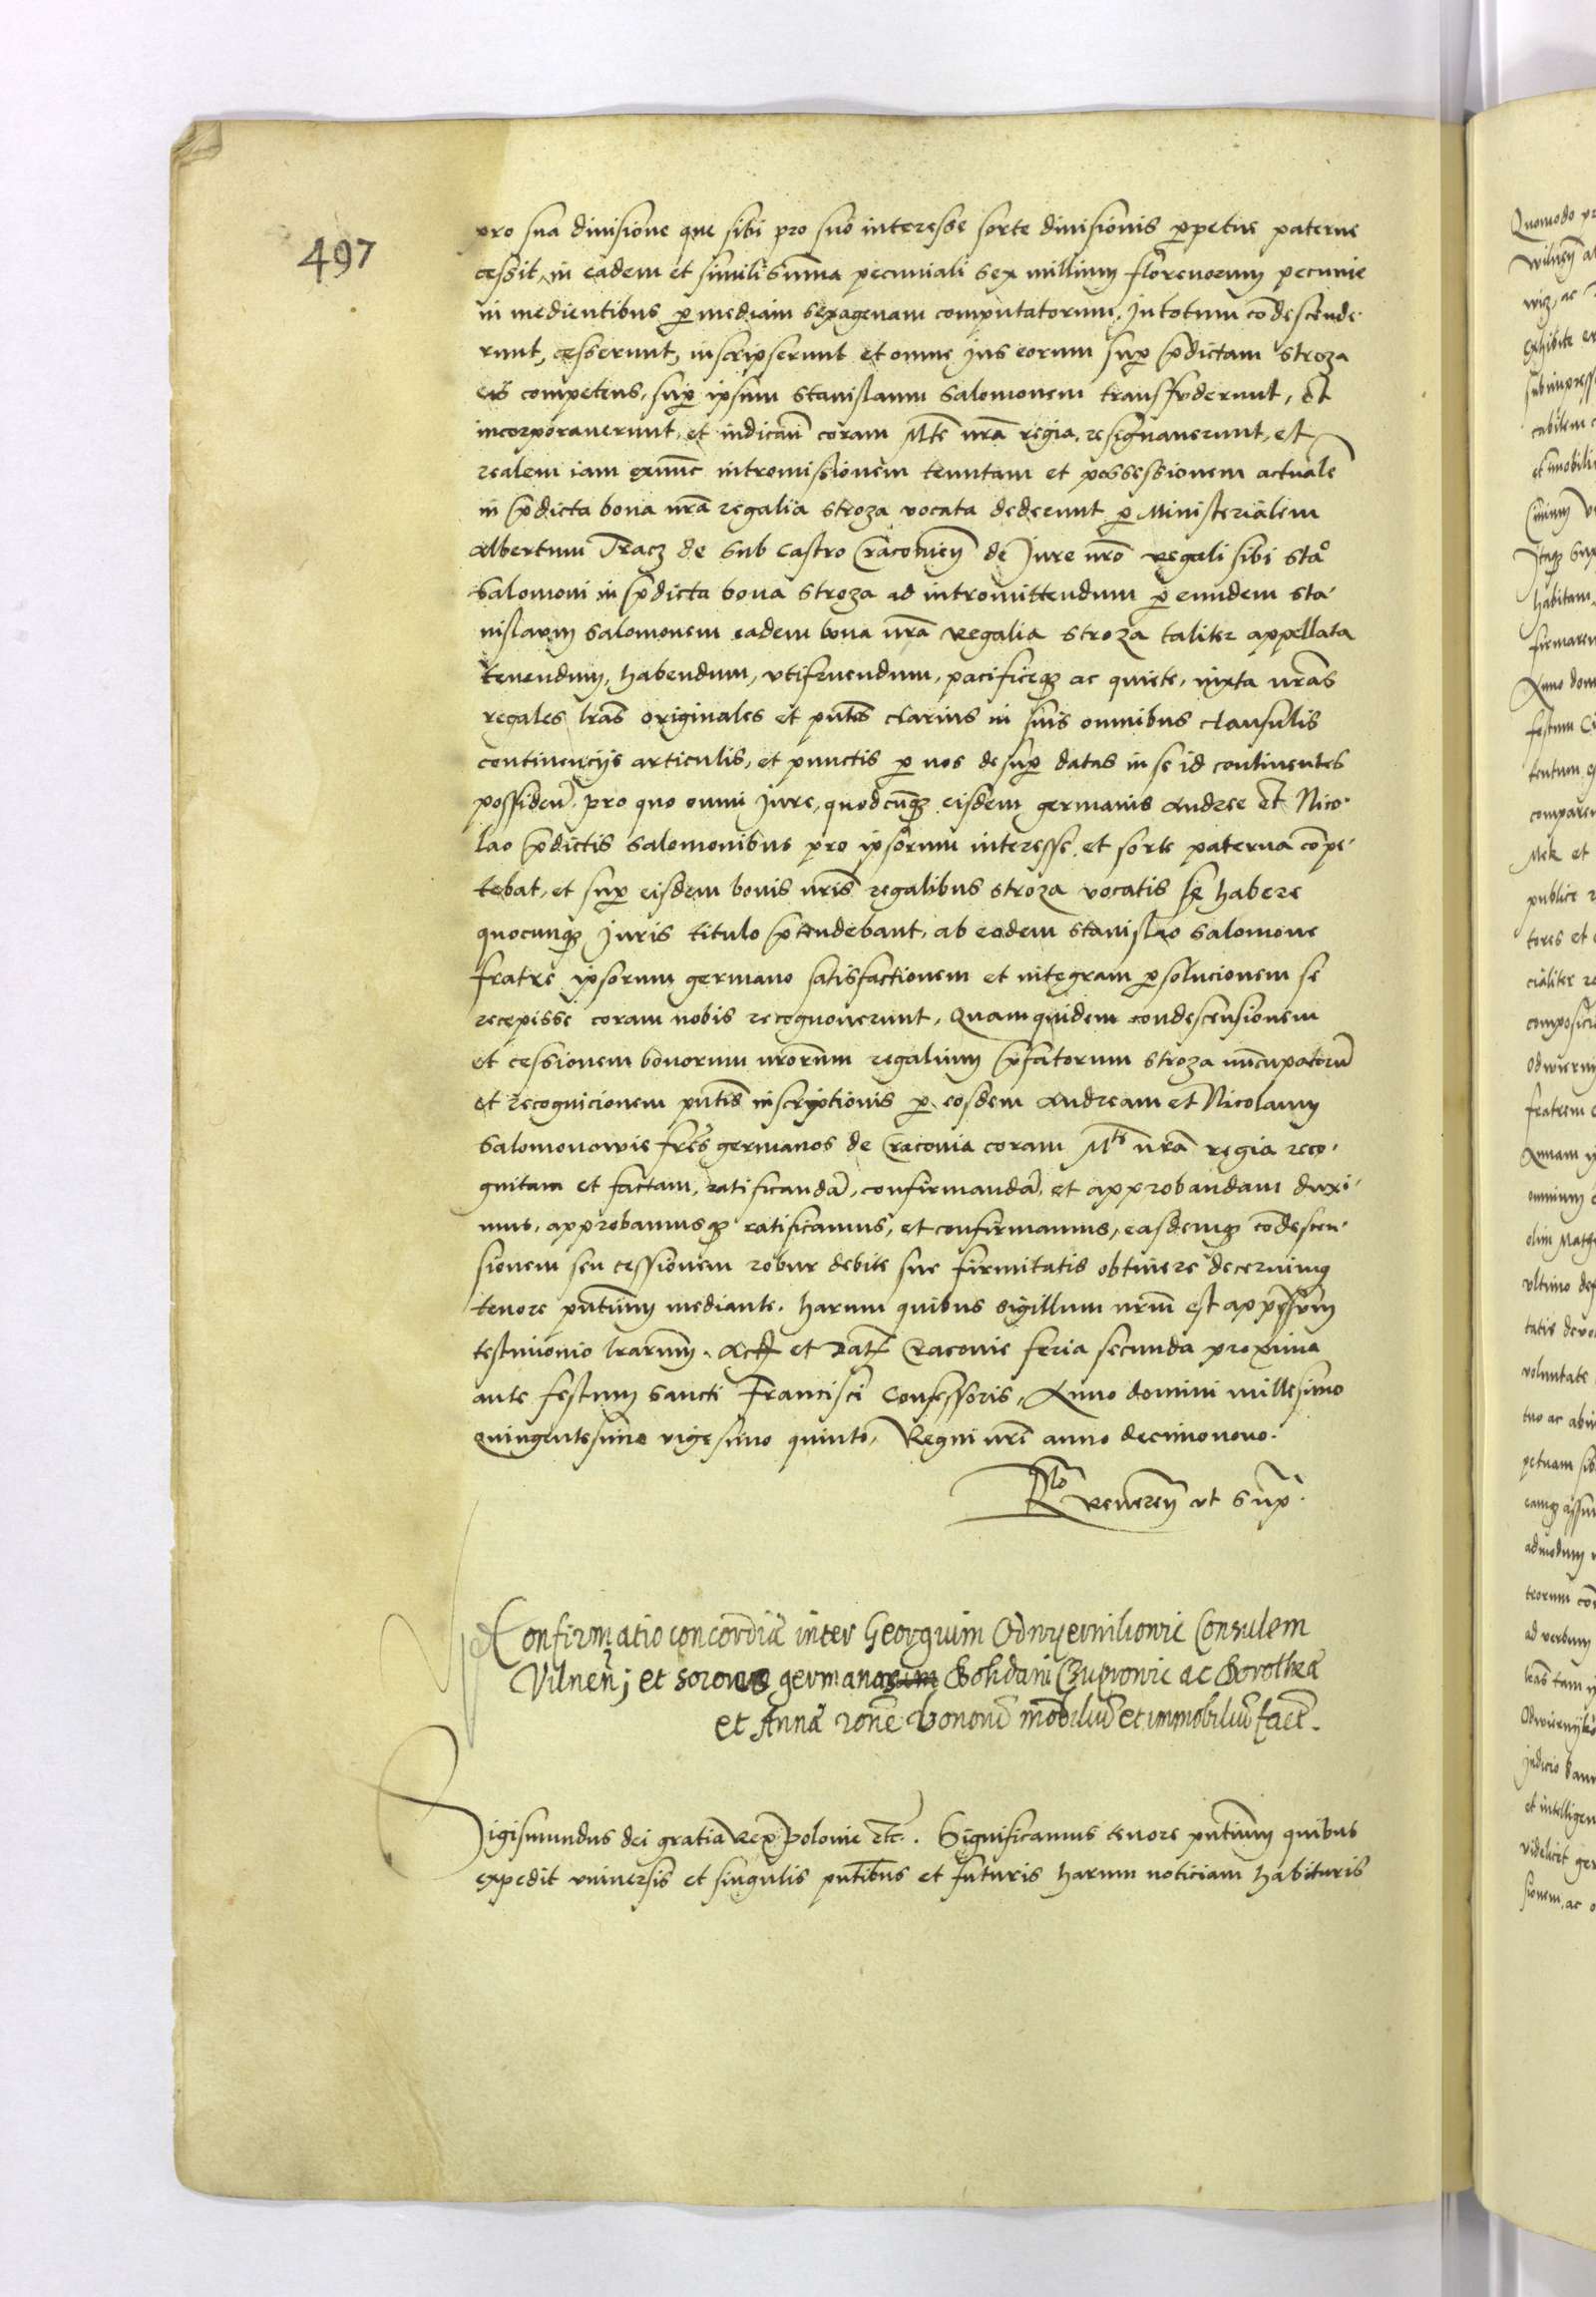 497
pro sua diuisione que sibi pro suo interesse sorte diuisionis p̱petue paterne
cessit, in eadem et simili sum̄a pecuniali sex millium florenorum pecunie
in medientibus p̱ mediam sexagenam computatorum. Jn totum cōdescende-
runt, cesserunt, inscripserunt et omne jus eorum sup̱ p̄dictam Stroza
eis competens, sup̱ ipsum Stanislaum Salomonem transfuderunt, et
incorporauerunt, et indicaū coram Mte nr̄a regia, resignauerunt, et
realem iam exnūc intromissionem tenutam et possessionem actualē
in p̄dicta bona nr̄a regalia Stroza vocata dederunt p̱ Ministerialem
Albertum Tracz de Sub Castro Cracouien̄ de Jure nr̄o regali sibi Stao
Salomoni in p̄dicta bona Stroza ad intromittendum p̱ eundem Sta-
nislaum Salomonem eadem bona nr̄a regalia Stroza taliter appellata
tenendum, habendum, vtifruendum, pacificeqꝫ ac quiete, iuxta nr̄as
regales lr̄as originales et pn̄tes clarius in suis omnibus clausulis
continencijs articulis, et punctis p̱ nos desup̱ datas in se id continentes
possideñ. pro quo omni jure, quodcūqꝫ eisdem germanis Andree et Nico-
lao p̄dictis Salomonibus pro ipsorum interesse et sorte paterna cōpe-
tebat, et sup̱ eisdem bonis nr̄is regalibus Stroza vocatis se habere
quocunqꝫ Juris titulo p̄tendebant, ab eodem Stanislao Salomone
fratre ipsorum germano satisfactionem et integram p̱solucionem se
recepisse coram nobis recognouerunt, Quamquidem condescensionem
et cessionem bonorum nr̄orum regalium p̄fatorum Stroza nūcupatorū
et recognicionem pn̄tis inscriptionis p̱ eosdem Andream et Nicolaum
Salomonowie fr̄es germanos de Cracouia coram Mte nr̄a regia reco-
gnitam et factam, ratificandā, confirmandā, et approbandam duxi-
mus, approbamusqꝫ ratificamus, et confirmamus, easdemqꝫ cōdescen-
sionem seu cessionem robur debite sue firmitatis obtinere decernimus
tenore pn̄tium mediante. harum quibus sigillum nr̄um est app̄ssum
testimonio lr̄arum. Act̄ et Dat̄ Cracouie feria secunda proxima
ante festum Sancti Francisci Confessoris, Anno domini millesimo
quingentesimo vigesimo quinto, Regni nr̄i anno decimonono.
Rlo Reueren̄ vt Sup̱.
Confirmatio concordiæ inter Georgium Odwyernikowic Consulem
Vilneñ; et sorores germanorum Bohdani Czuprowic ac Dorotheā
et Annā rōne bonorū mobiliū et immobiliū fact.
Sigismundus dei gratia Rex Polonie etc. Significamus tenore pn̄tium quibus
expedit vniuersis et singulis pn̄tibus et futuris harum noticiam habituris